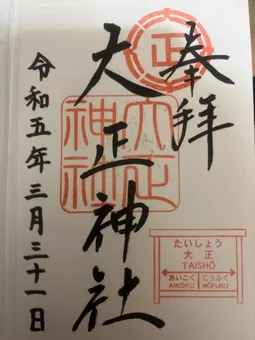 奉拝
正
大正神社
大正神社
令和五年三月三十一日
たいしょう
大正
TAISHŌ
あいこく
AIKOKU
こうふく
KŌFUKU